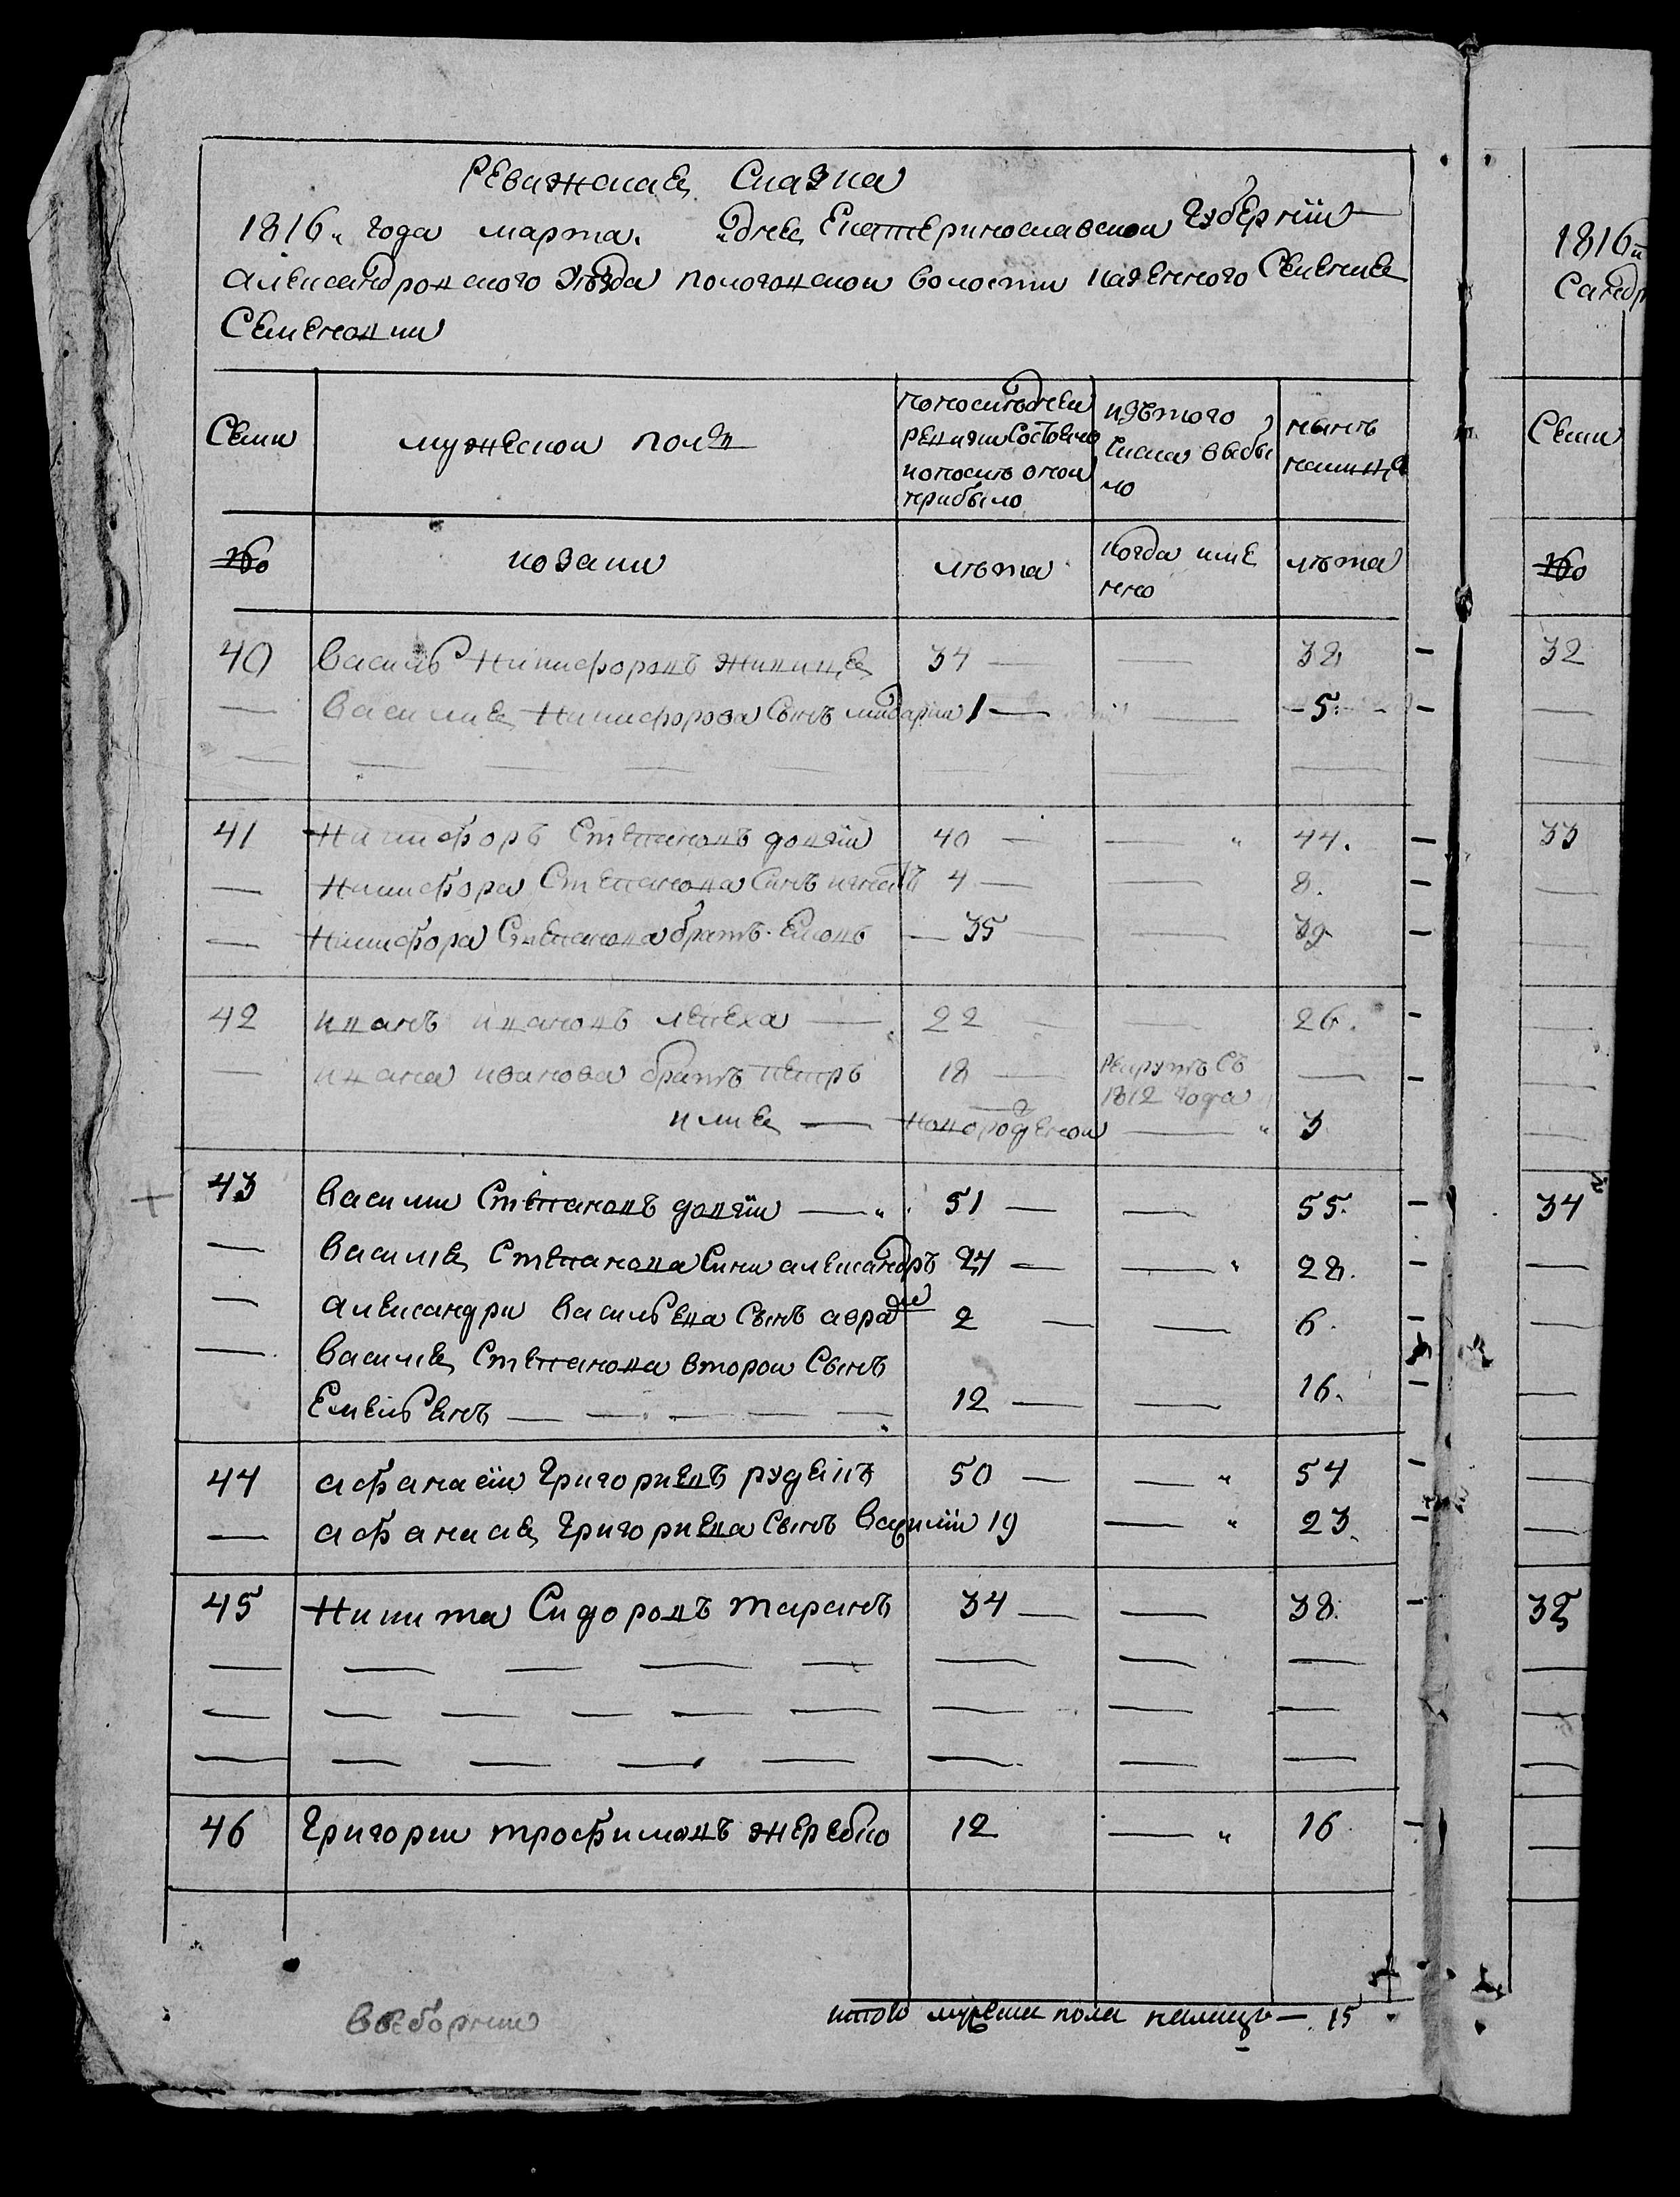 Ревижская Сказка
1816 года марта. дня Екатеринославской Губернiи
Александровского Уезда пологовской волости казенного Селения
Семеновки
Семи
мужеской полъ
по последней ревизии состояло и после оной прибыло
изътого числа выбыло
ныне налицо
№
козаки
лѣта
когда именно
лѣта
40 Василь Никифоровъ 34 — — 38
— Василия Никифорова Сынъ 1 — — 5.
41 Никифоръ Степановъ довгiй 40 — — 44.
— Никифора Степанова Синъ игнатъ 4 — — 8.
— Никифора Степанова братъ — 35 — — 39
42 иванъ ивановъ лепеха — 22 — — 26.
— ивана иванова братъ петръ 18 — рекрутъ съ 1812 года —
илия — новорожденой — 3
43 Василий Степановъ довгiй — 51 — — 55.
— Василiя Степанова Сини александръ 24 — — 28.
— александри Васильева Сынъ 2 — — 6.
— Василия Степанова второй Сынъ
Емельянъ — — — — — 12 — — 16.
44 афанасiй Григориевъ 50 — — 54
— афанасия Григориева Сынъ Василiй 19 — 23.
45 Никита Сидоровъ таранъ 34 — — 38.
46 Григорий трофимовъ жеребко 12 — 16
Выборний
итого мужеска пола налицо — 15
1816
Семи
№
32
33
34
35